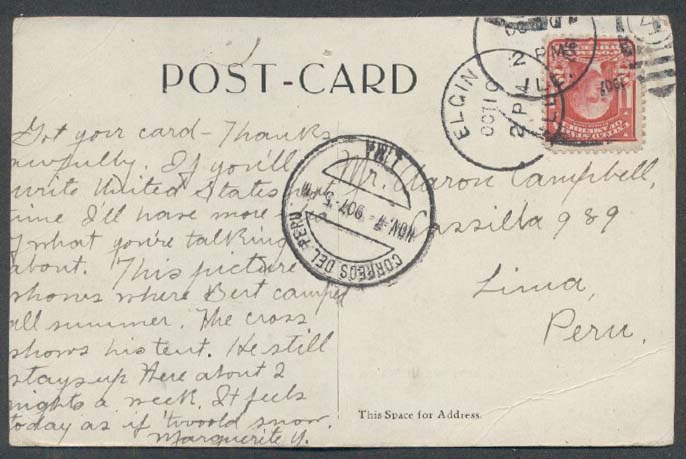 POST-CARD
Got your card - Thanks
awfully. If you'll
write United States next
time I'll have more
of what you're talking
about. This picture
shows where Bert camped
all summer. The cross
shows his tent. He still
stays up there about 2
nights a week. It feels
today as if 'twould snow.
Marguerite Y.
Mr. Aaron Campbell,
Cassilla 989
Lima,
Peru.
This Space for Address.
ELGIN
OCT 10
2 PM
ILL.
1907
LIMA
NOV. 907-5 PM
CORREOS DEL PERU